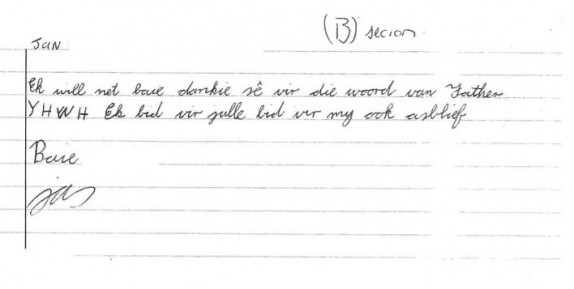 (B) secion.
JAN
Ek will net baie dankie sê vir die woord van Father
YHWH Ek bid vir julle bid vir my ook asblief
Baie